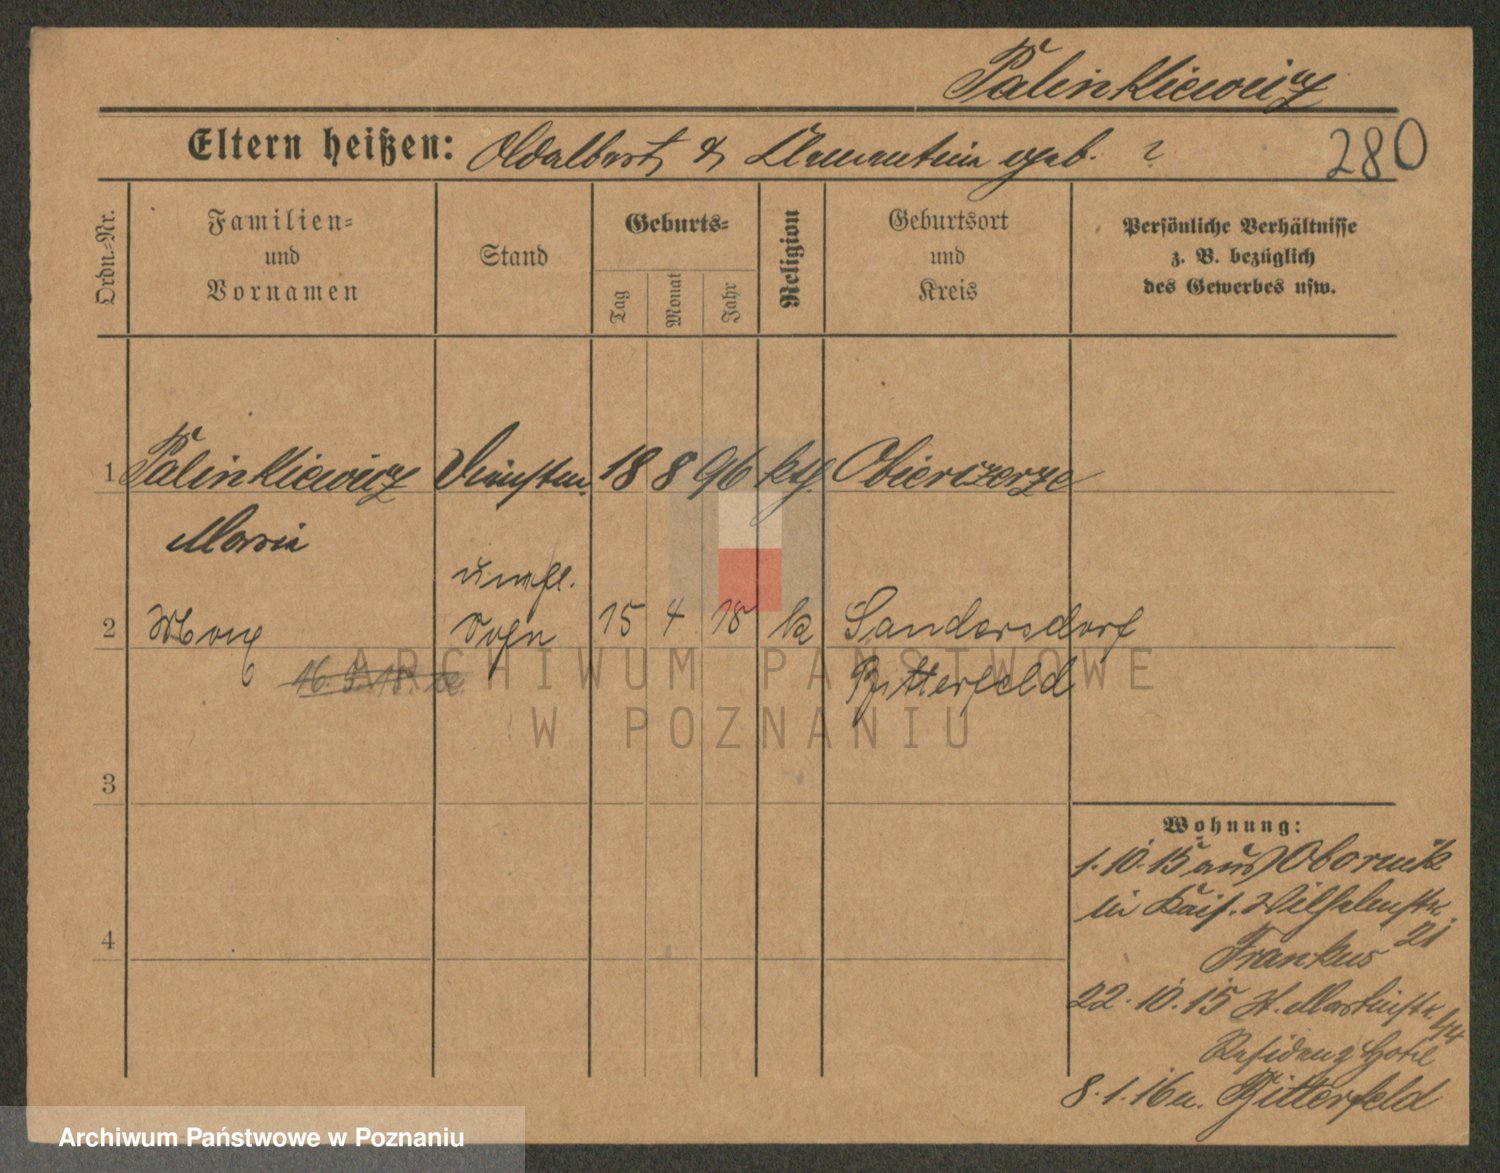 Palinkiewicz
Eltern heißen: Adalbert & Clementine geb. ?
280
Ordn.=Nr.
Familien=
und
Vornamen
Stand
Geburts=
Tag
Monat
Jahr
Religion
Geburtsort
und
Kreis
Persönliche Verhältnisse
z. B. bezüglich
des Gewerbes usw.
1 Palinkiewicz 18 8 96 kth. Obierzerze
Maria
unehl.
2 Sohn 15 4 18 k Sandersdorf
Bitterfeld
3
4
Wohnung:
1.10.15 aus Obornik
in Kais. Wilhelmstr.
21
Frankus
22.10.15 St. Martinstr. 44
Residenz Hotel
8.1.16 n. Bitterfeld
ARCHIWUM PAŃSTWOWE
W POZNANIU
Archiwum Państwowe w Poznaniu